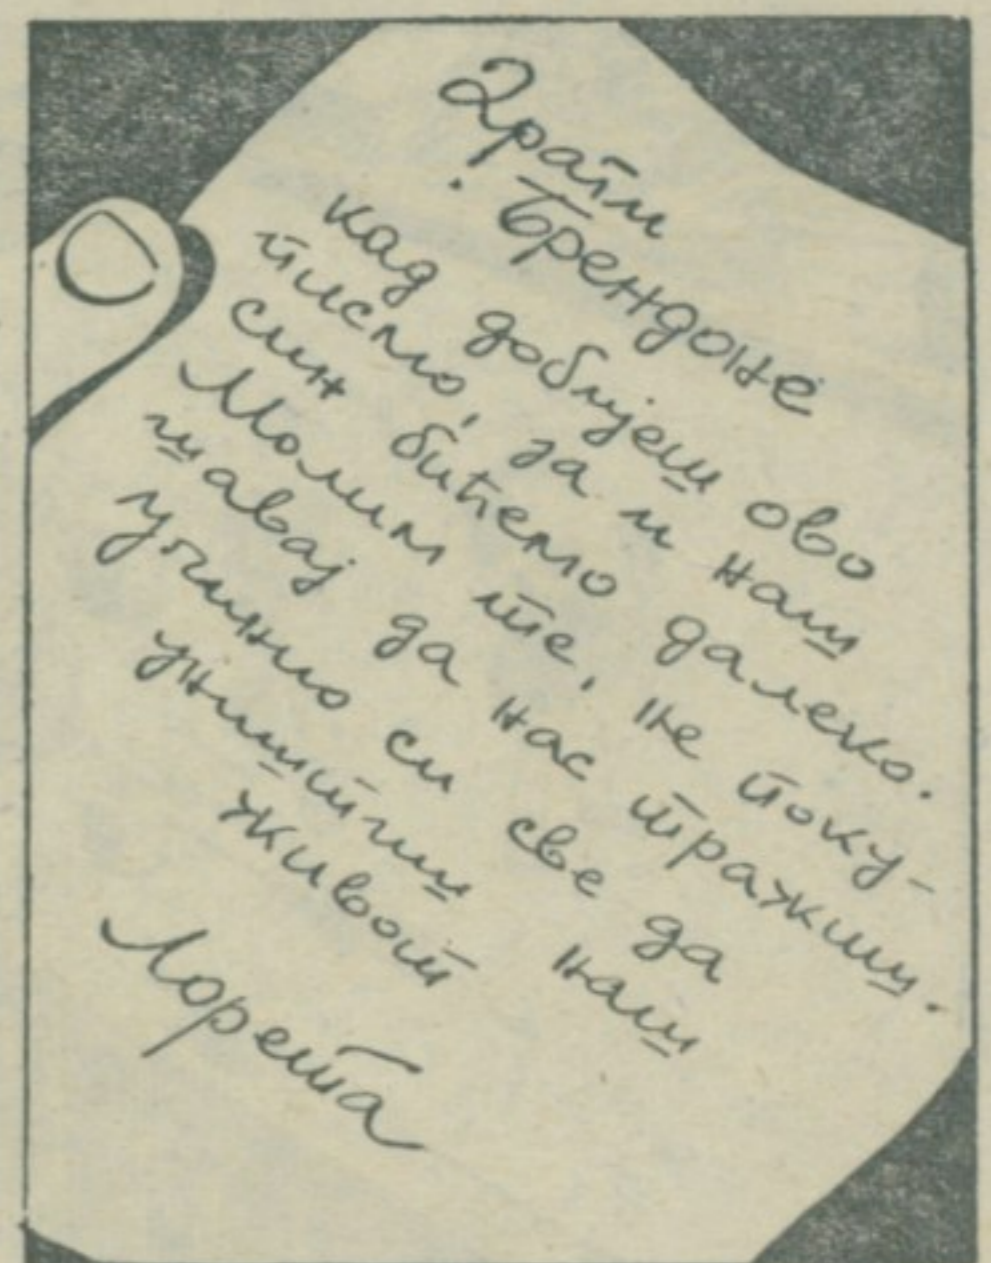 Драги
Брендоне
кад добијеш ово
писмо, ја и наш
син бићемо далеко.
Молим те, не поку-
шавај да нас тражиш.
Учинио си све да
уништиш наш
живот
Лорета